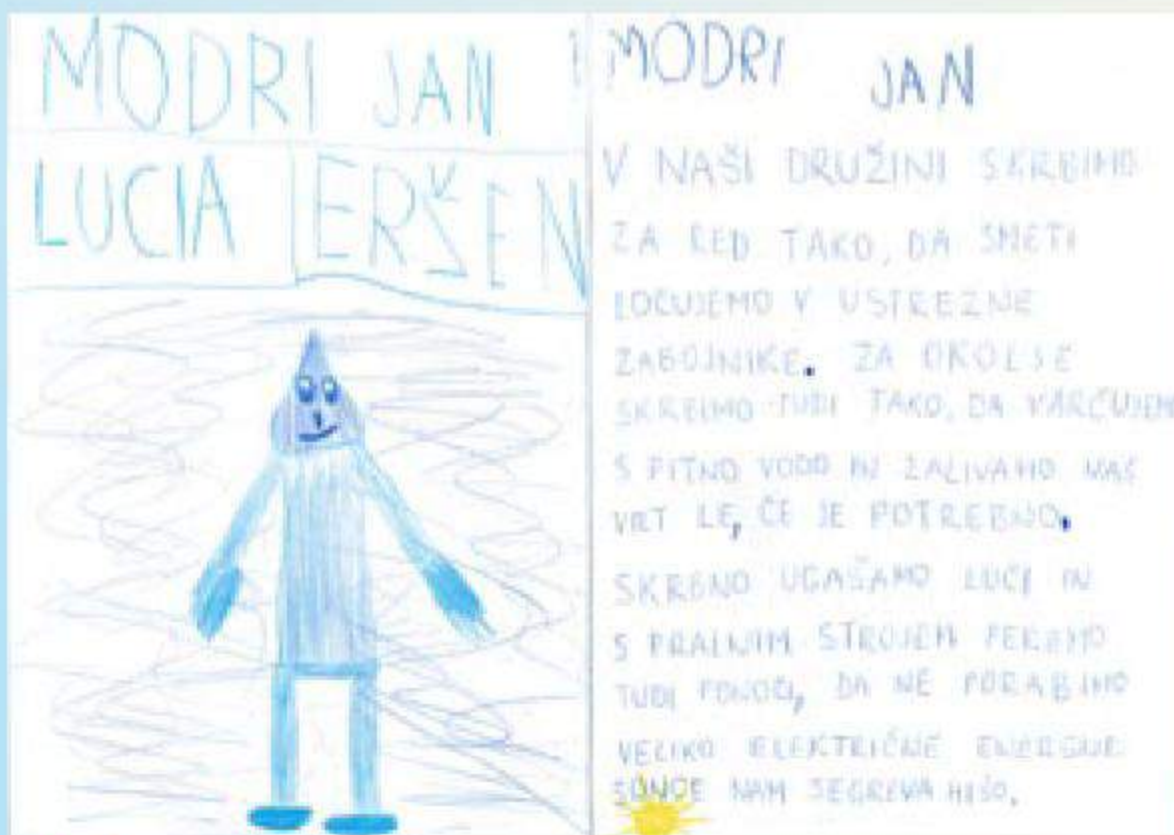 MODRI JAN
LUCIA ERŠEN
MODRI JAN
V NAŠI DRUŽINI SKRBIMO
ZA RED TAKO, DA SMETI
LOČUJEMO V USTREZNE
ZABOJNIKE. ZA OKOLJE
SKRBIMO TUDI TAKO, DA VARČUJEM
S PITNO VODO IN ZALIVAMO NAŠ
VRT LE, ČE JE POTREBNO.
SKRBNO UGAŠAMO LUČI IN
S PRALNIM STROJEM PEREMO
TUDI PONOČI, DA NE PORABIMO
VELIKO ELEKTRIČNE ENERGIJE.
SONCE NAM SEGREVA HIŠO.